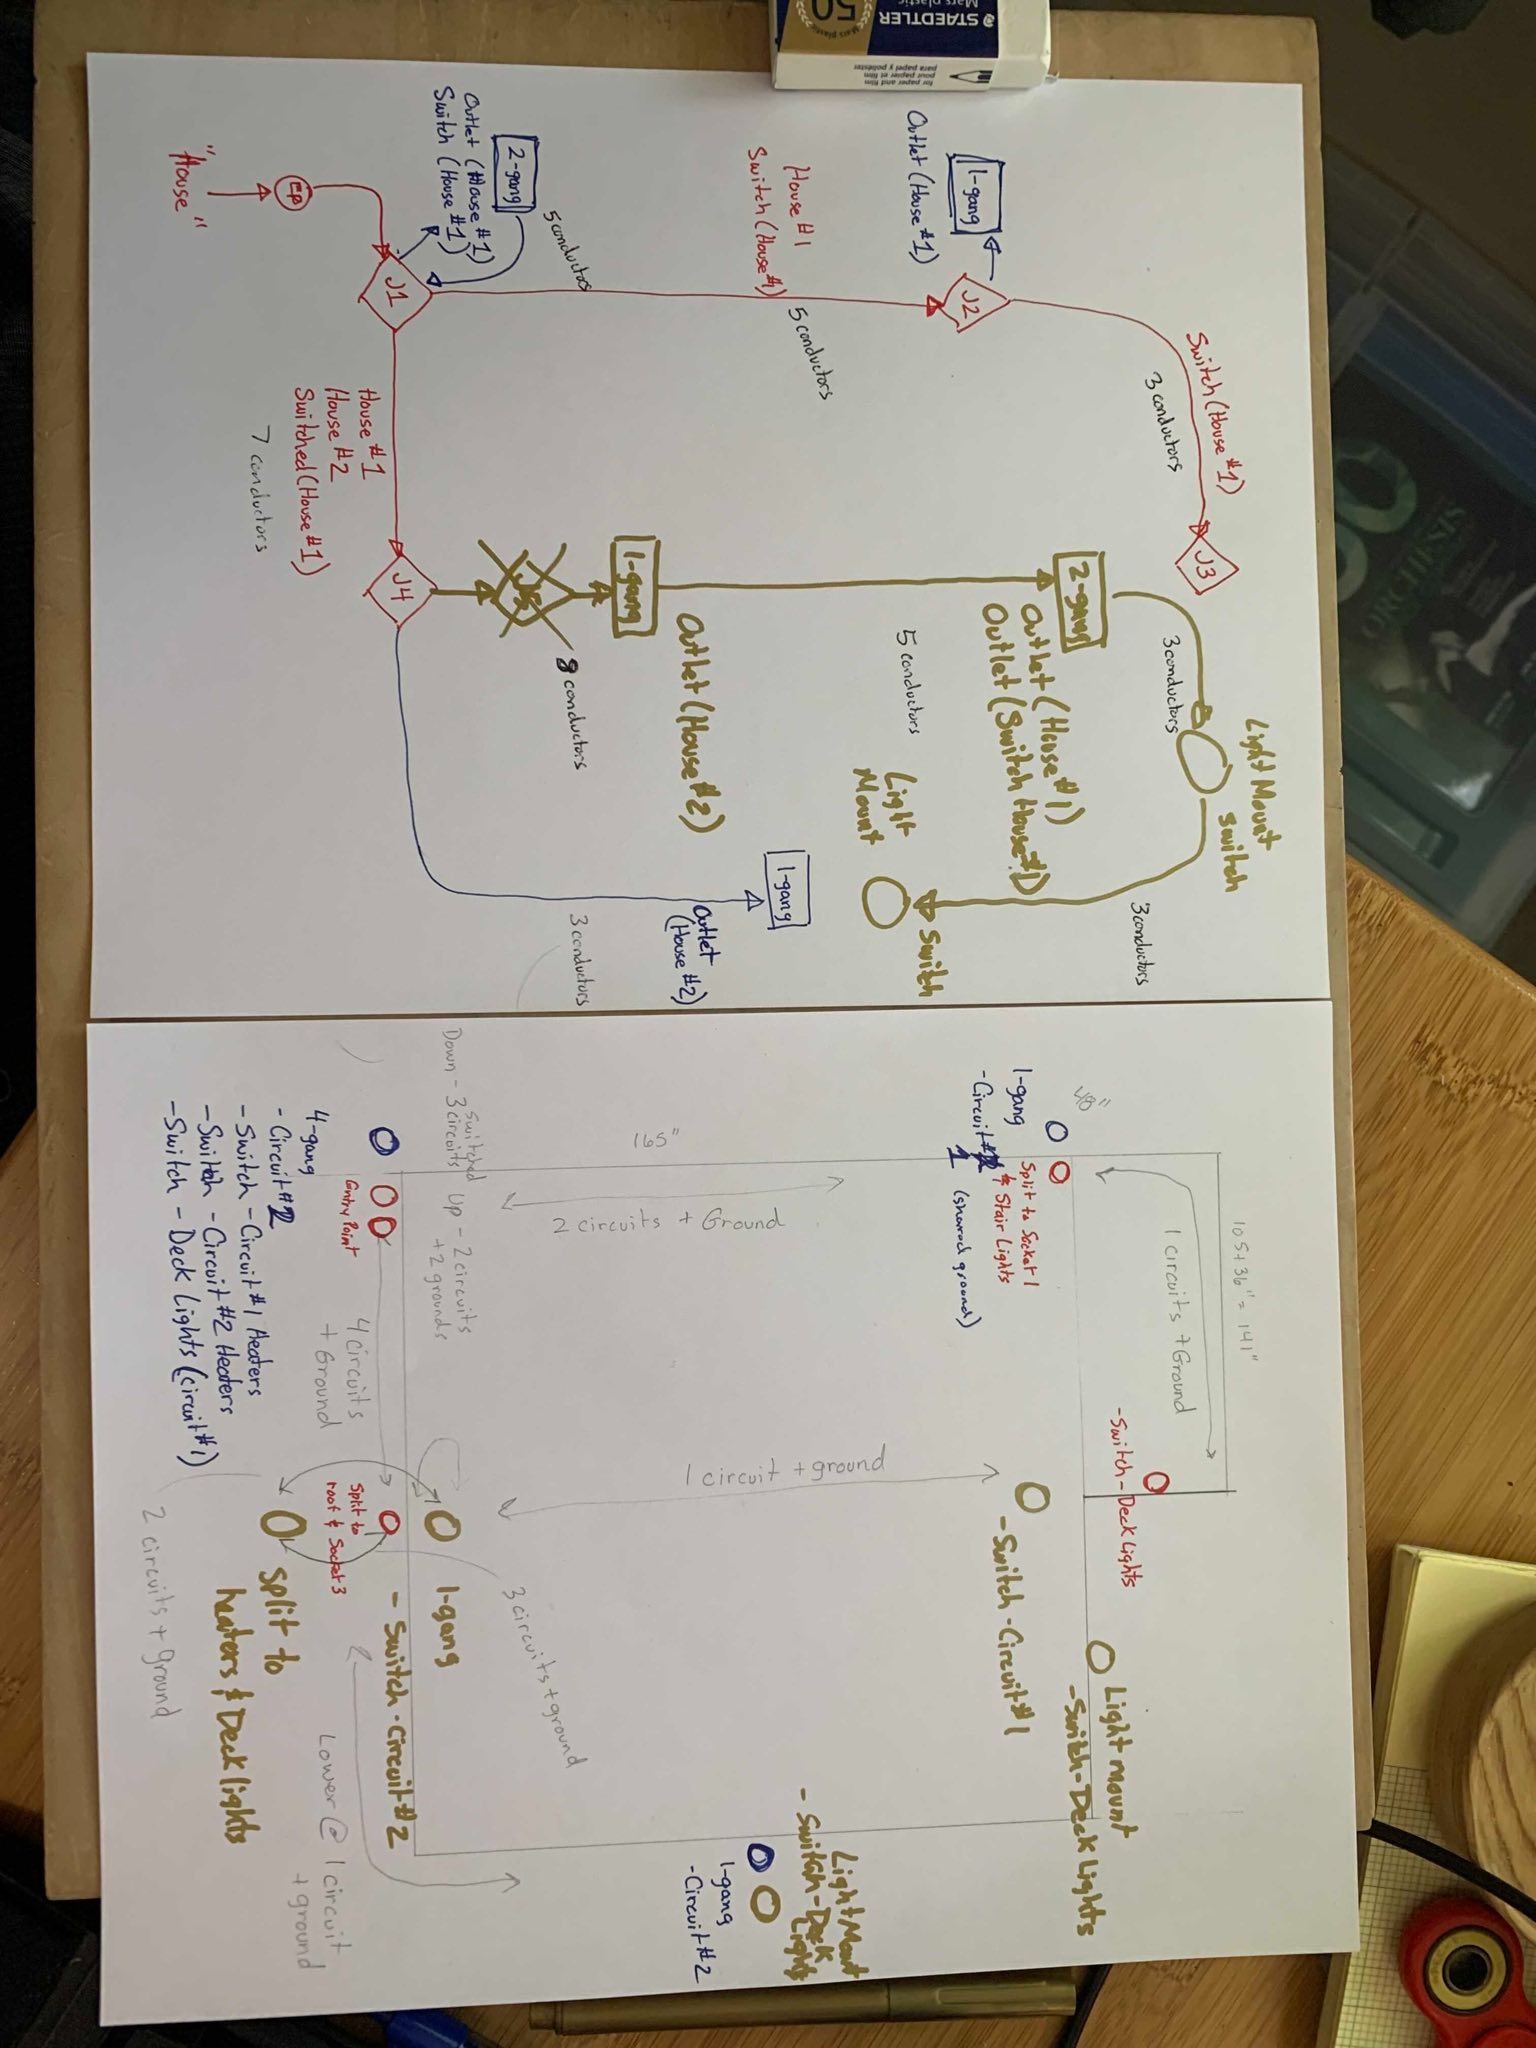 STAEDTLER
Mars plastic
50
Mars plastic
for paper and film
pour papier et film
para papel y poliéster
"House"
EP
J1
2-gang
Outlet (House #1)
Switch (House #1)
5 conductors
House #1
Switch (House #1)
5 conductors
1-gang
Outlet (House #1)
J2
Switch (House #1)
3 conductors
J3
House #1
House #2
Switched (House #1)
7 conductors
J4
8 conductors
1-gang
Outlet (House #2)
5 conductors
2-gang
Outlet (House #1)
Outlet (Switch House #1)
3 conductors
Light Mount
Switch
3 conductors
Light
Mount
Switch
1-gang
Outlet
(House #2)
3 conductors
ORCHESIS
48"
105+36" = 141"
1 circuits + Ground
1-gang
-Circuit #1
Split to Socket 1
& Stair Lights
(shared ground)
-Switch-Deck Lights
165"
2 circuits + Ground
Down - 3 circuits
switched
Up - 2 circuits
+ 2 grounds
Entry Point
4-gang
- Circuit #2
- Switch - Circuit #1 Heaters
- Switch - Circuit #2 Heaters
- Switch - Deck Lights (circuit #1)
4 circuits
+ Ground
1 circuit + ground
-Switch-Circuit #1
Light mount
-Switch-Deck Lights
Split to
roof & Socket 3
1-gang
- Switch-Circuit #2
3 circuits + ground
Split to
heaters & Deck lights
2 circuits + ground
Lower @ 1 circuit
+ ground
Light Mount
- Switch-Deck
Lights
1-gang
-Circuit #2